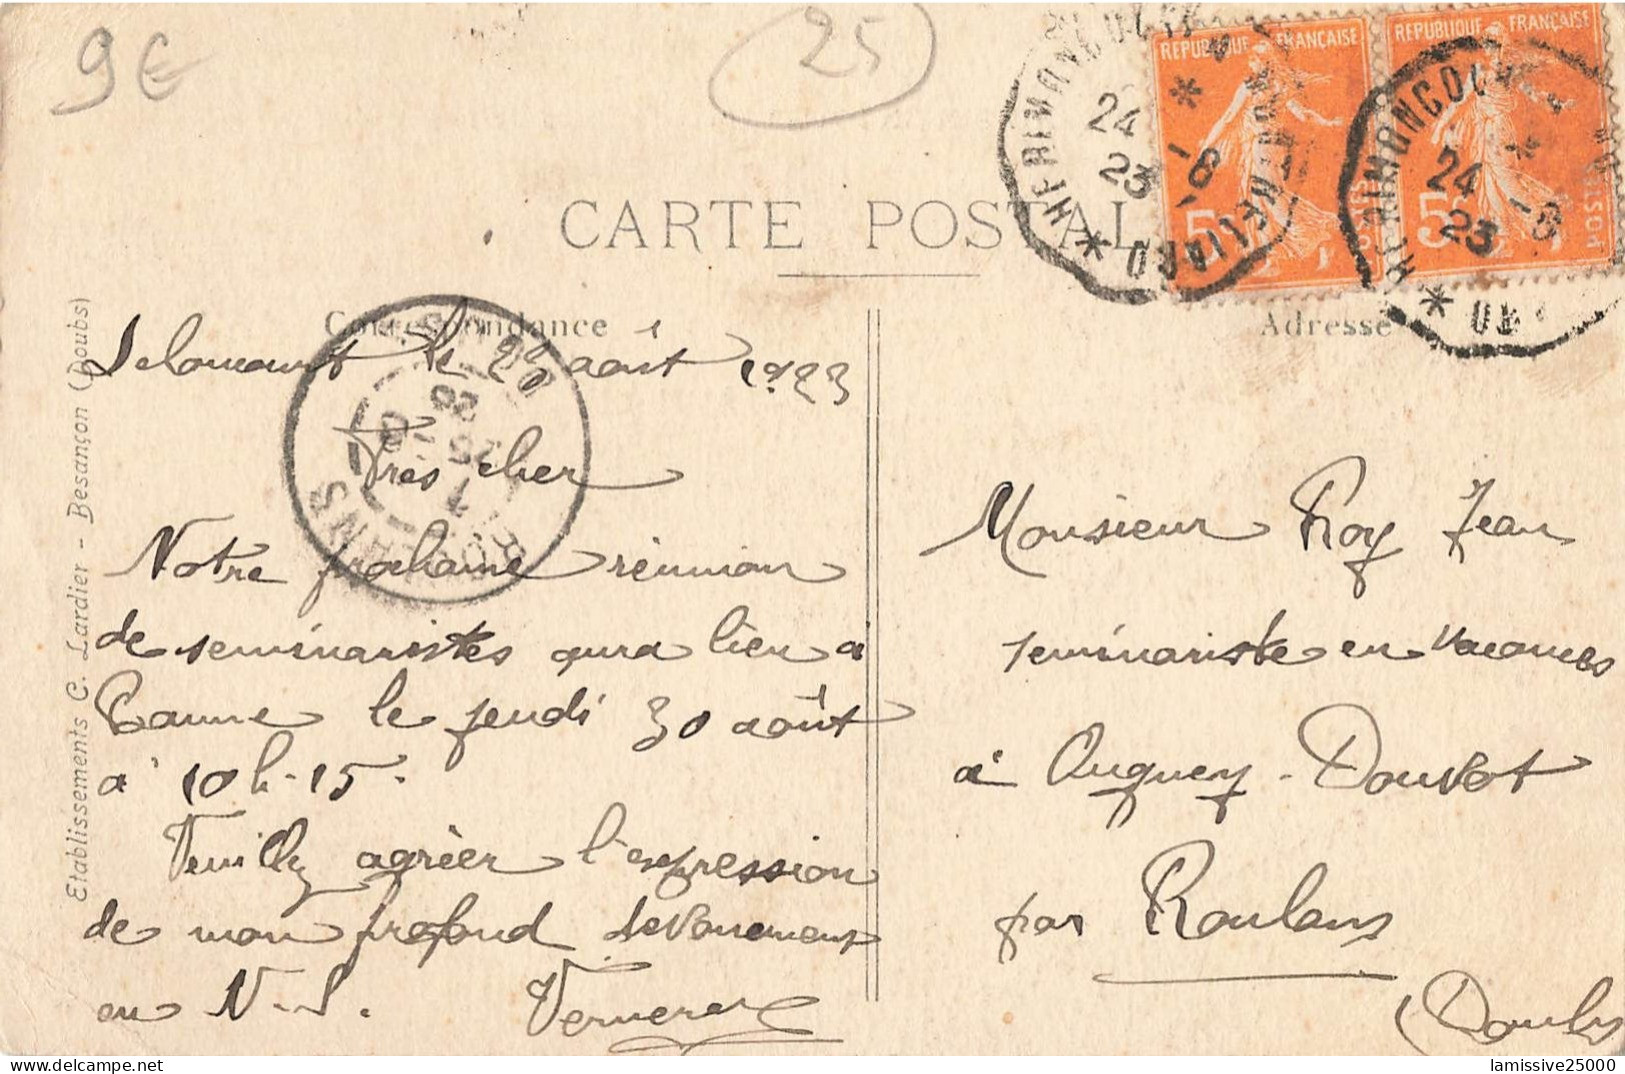 9€
25
CARTE POSTALE
Correspondance
Adresse
REPUBLIQUE FRANÇAISE
5c
REPUBLIQUE FRANÇAISE
5c
HERIMONCOURT
24 -8
23
HERIMONCOURT
24 -8
23
ROULANS
DOUBS
Etablissements C. Lardier - Besançon (Doubs)
le août 1923
Très cher
Notre prochaine réunion
de seminaristes aura lieu à
le jeudi 30 août
à 10h-15.
Veuillez agréer l'expression
de mon profond dévouement
en N.-S.
Monsieur Roy Jean
séminariste en vacances
à Ougney-Douvot
par Roulans
(Doubs
lamissive25000